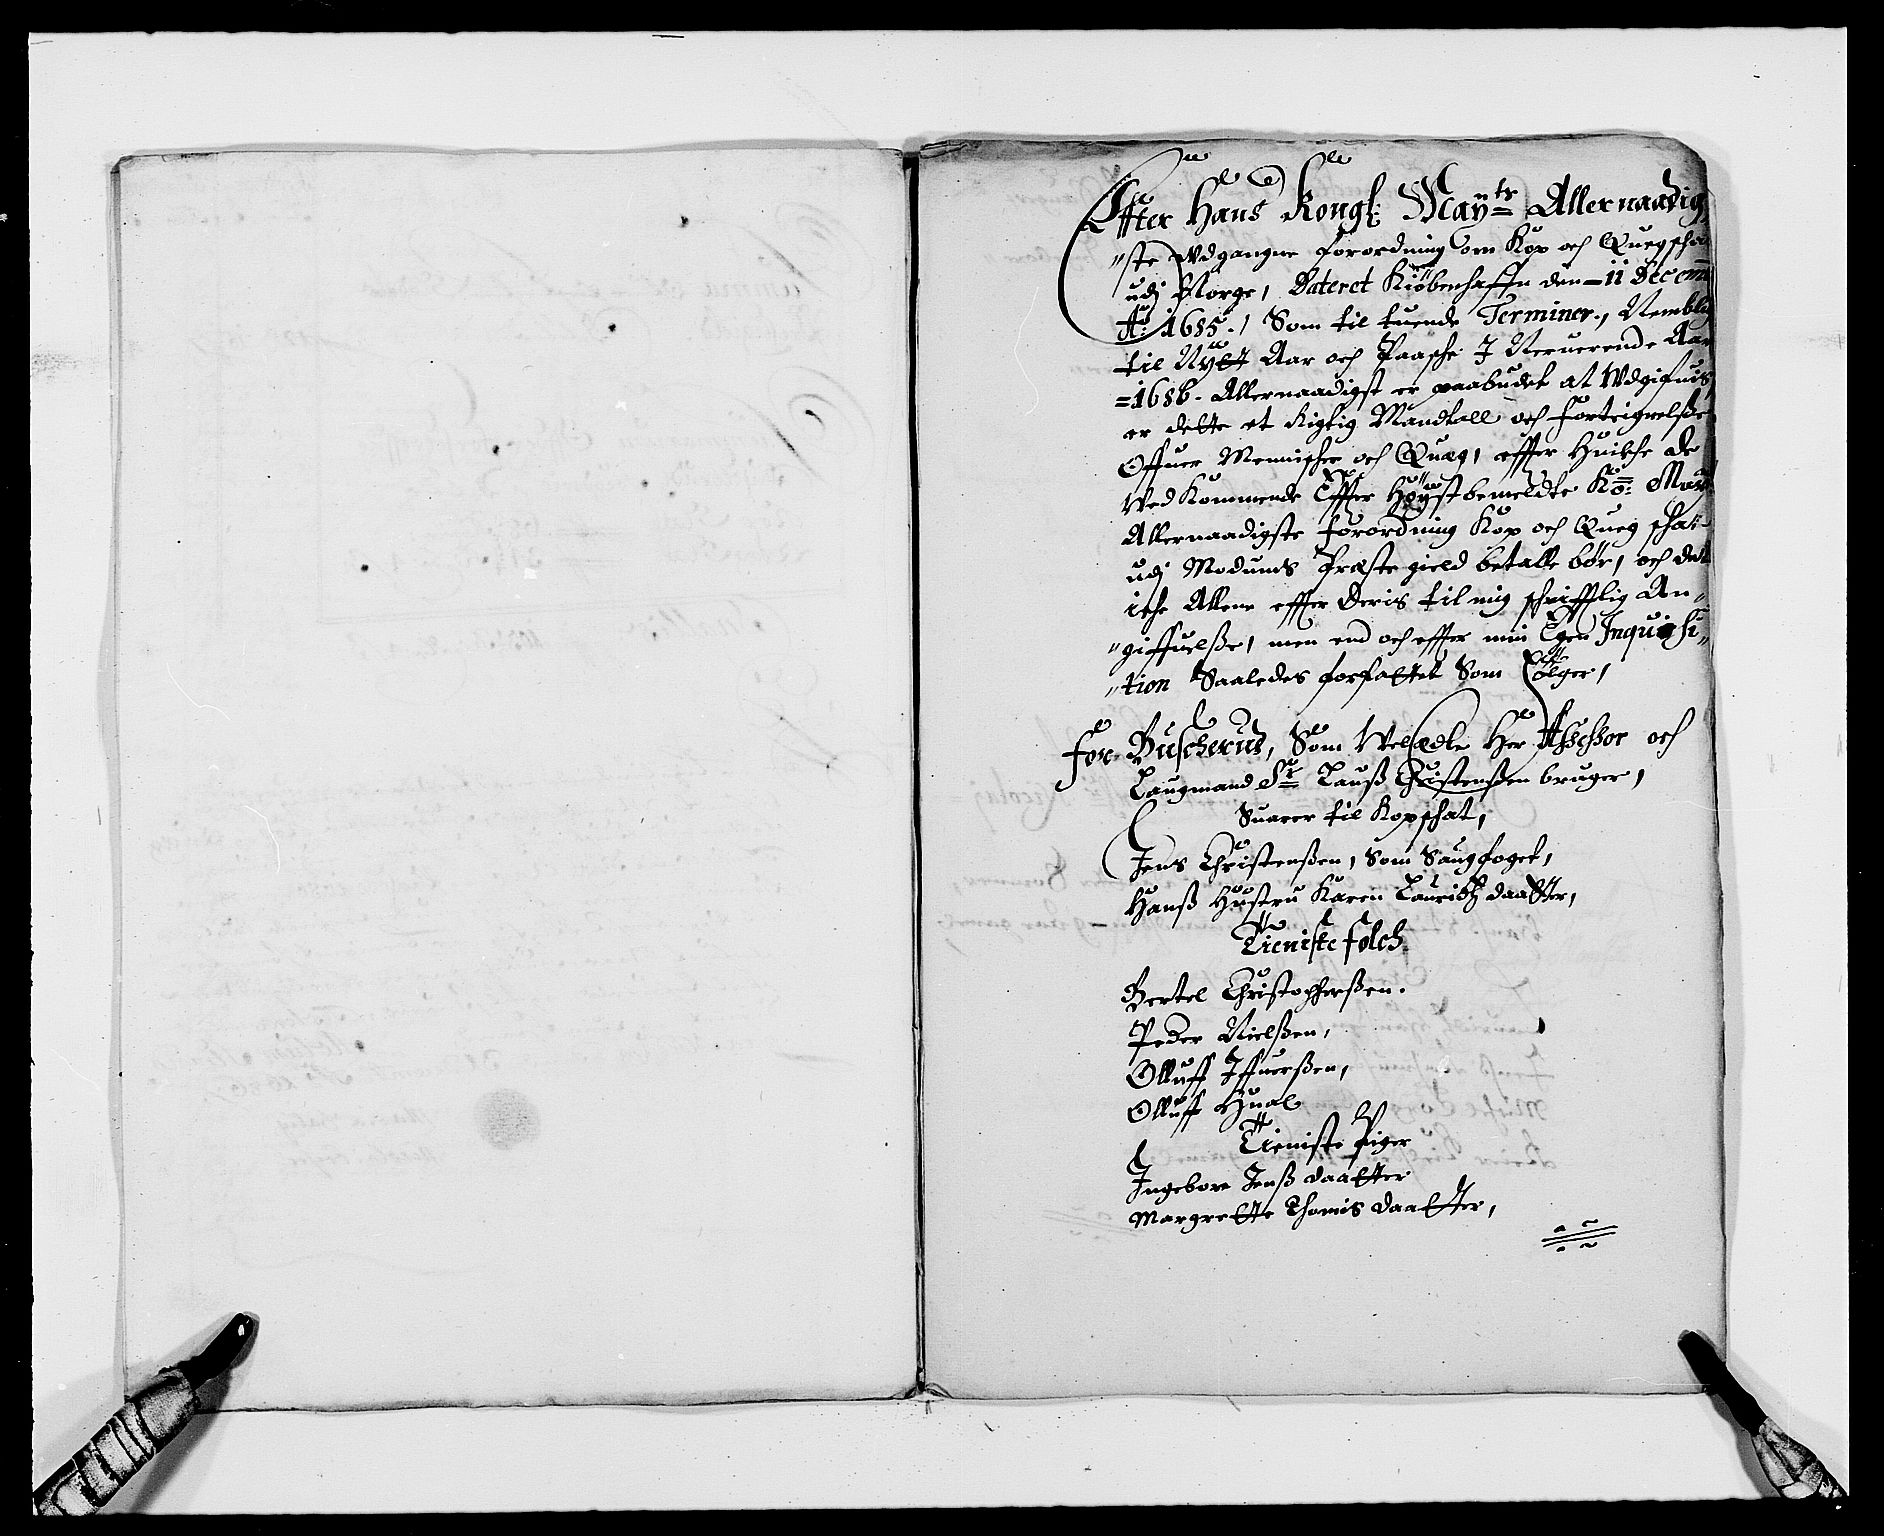 Effter Hans Kongl: Mayts Allernaadig
"ste Wdgangne forordning om Kop och Quegschat
udj Norge, Dateret Kiöbenhaffn den 11 Decemb
Ao: 1685., Som til tuende Terminer, Nemblig
til Nyet Aar och Paasche J Neruerende Aar
=1686. Allernaadigst er paabudet at Wdgifuis,
er dette et Rigtig Mandtall och forteignelsße
Offuer Mennischer och Quæg, effter Huilche de
Ved Kommende Effter Höyst bemeldte Ko: May
Allernaadigste forordning Kop och Queg schat
udj Modums Præste gield betalle bør, och det
iche Allene effter Deris til mig schrifftlig An"
"giffuelsße, men end och effter min Egen Inquisi"
"tion Saaledes forfattet Som følger,
for Buscherud, Som Velædle Her Assessor och
Laugmand Sr Lauß Christensßen bruger,
Suarer til Kopschat,
Jens Christensßen, Som Saugfoget,
Hanß Hustru Karen Lauridtz daatter,
Tieniste folch
Bertel Christophersßen.
Peder Nielsßen,
Olluff Iffuersßen,
Olluff Hual
Tieniste Piger
Ingebore Jenß daatter
Margrette Thomis daatter,